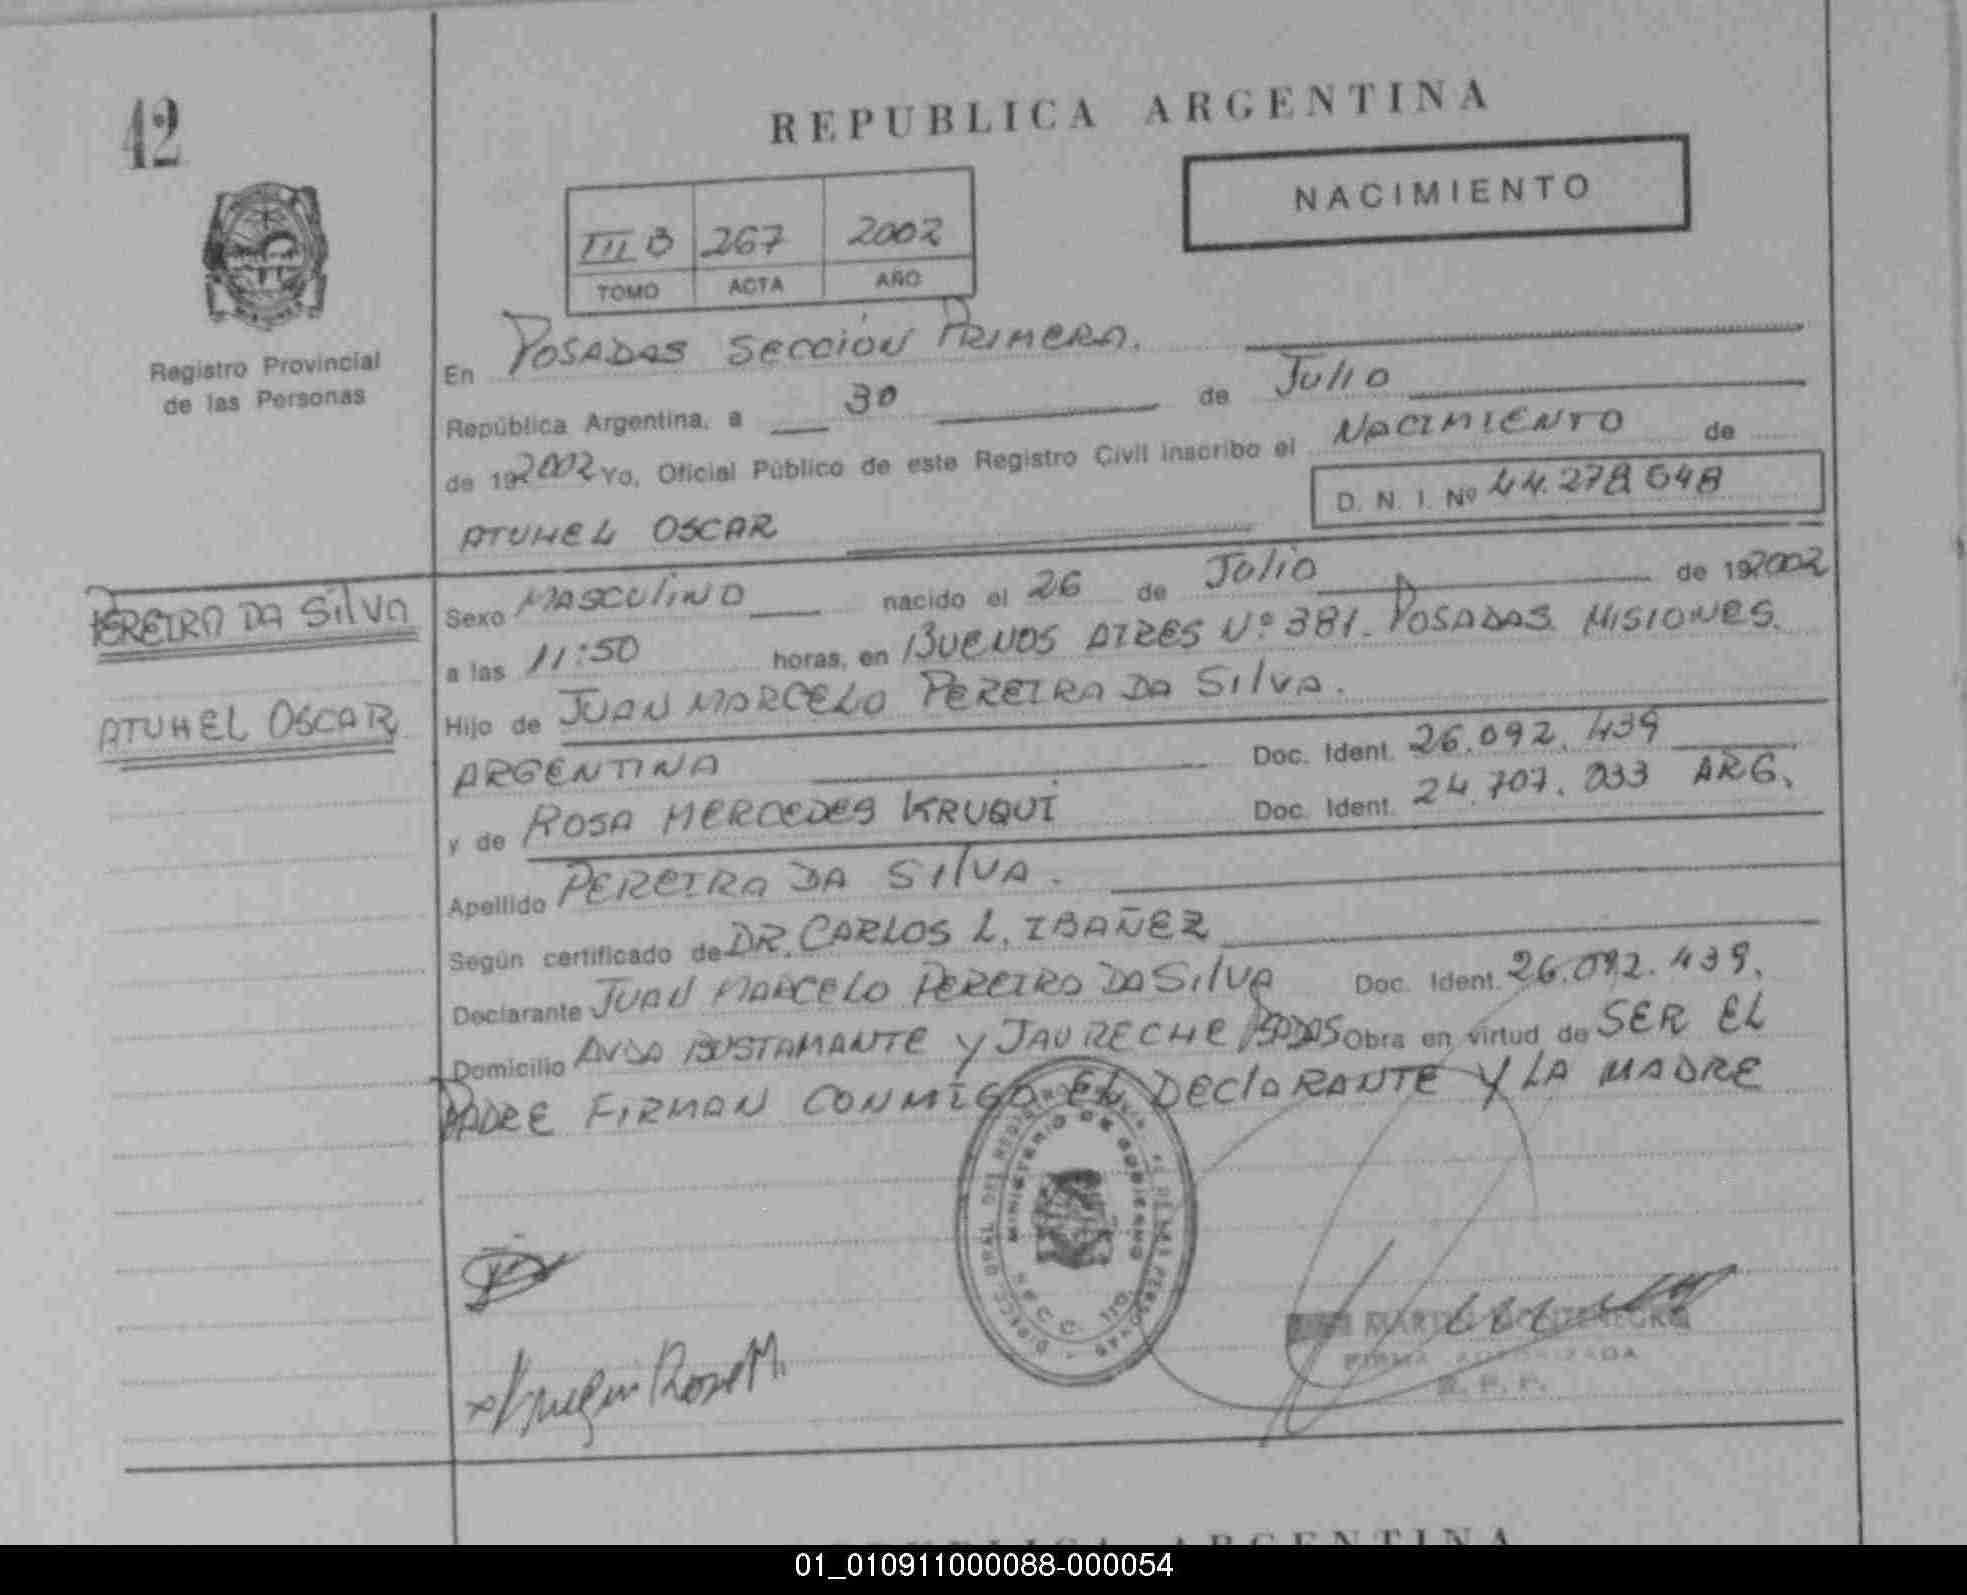 42
REPUBLICA ARGENTINA
NACIMIENTO
III B 267 2002
TOMO ACTA AÑO
Registro Provincial
de las Personas
En POSADAS SECCIÓN PRIMERA.
República Argentina, a 30 de Julio
de 192002 Yo, Oficial Público de este Registro Civil inscribo el NACIMIENTO de
D. N. I. Nº 44.278.648
ATUHEL OSCAR
PEREIRA DA SILVA
ATUHEL OSCAR
Sexo MASCULINO nacido el 26 de Julio de 192002
a las 11:50 horas, en BUENOS AIRES Nº 381. POSADAS. MISIONES.
Hijo de JUAN MARCELO PEREIRA DA SILVA.
ARGENTINA Doc. Ident. 26.092.439
y de ROSA MERCEDES KRUQUI Doc. Ident. 24.707.033 ARG.
Apellido PEREIRA DA SILVA.
Según certificado de DR. CARLOS L. IBAÑEZ
Declarante JUAN MARCELO PEREIRA DA SILVA Doc. Ident. 26.092.439.
Domicilio AVDA BUSTAMANTE Y JAURECHE PSADAS Obra en virtud de SER EL
PADRE FIRMAN CONMIGO EL DECLARANTE Y LA MADRE
MINISTERIO DE GOBIERNO
Rosa M.
FIRMA AUTORIZADA
R. P. P.
REPUBLICA ARGENTINA
01_010911000088-000054